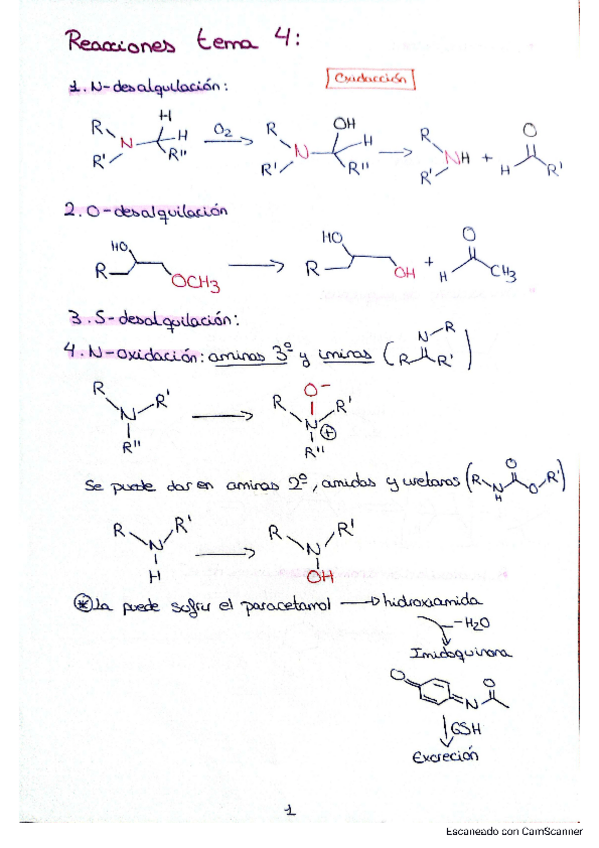 Reacciones tema 4:
1. N-desalquilación:
Oxidacción
H
R
N
H
R'
R"
O2
R
N
OH
H
R'
R"
R
NH
R'
+
O
H
R'
2. O-desalquilación
HO
R
OCH3
HO
R
OH
+
O
H
CH3
3. S-desalquilación:
4. N-oxidación: aminas 3º y iminas (
N
R
R
R'
)
R
N
R'
R"
O-
R
N
R'
+
R"
Se puede dar en aminas 2º, amidas y uretanos (
R
N
H
O
O
R'
)
R
N
R'
H
R
N
R'
OH
* La puede sufrir el paracetamol → hidroxiamida
-H2O
Imidoquinona
O
N
O
GSH
Excreción
1
Escaneado con CamScanner